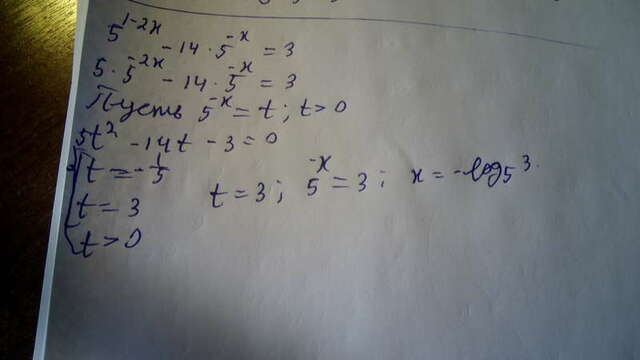 5^{1-2x} - 14 · 5^{-x} = 3
5 · 5^{-2x} - 14 · 5^{-x} = 3
Пусть 5^{-x} = t ; t > 0
5t² - 14t - 3 = 0
t = -1/5
t = 3
t > 0
t = 3 ; 5^{-x} = 3 ; x = -log₅3.